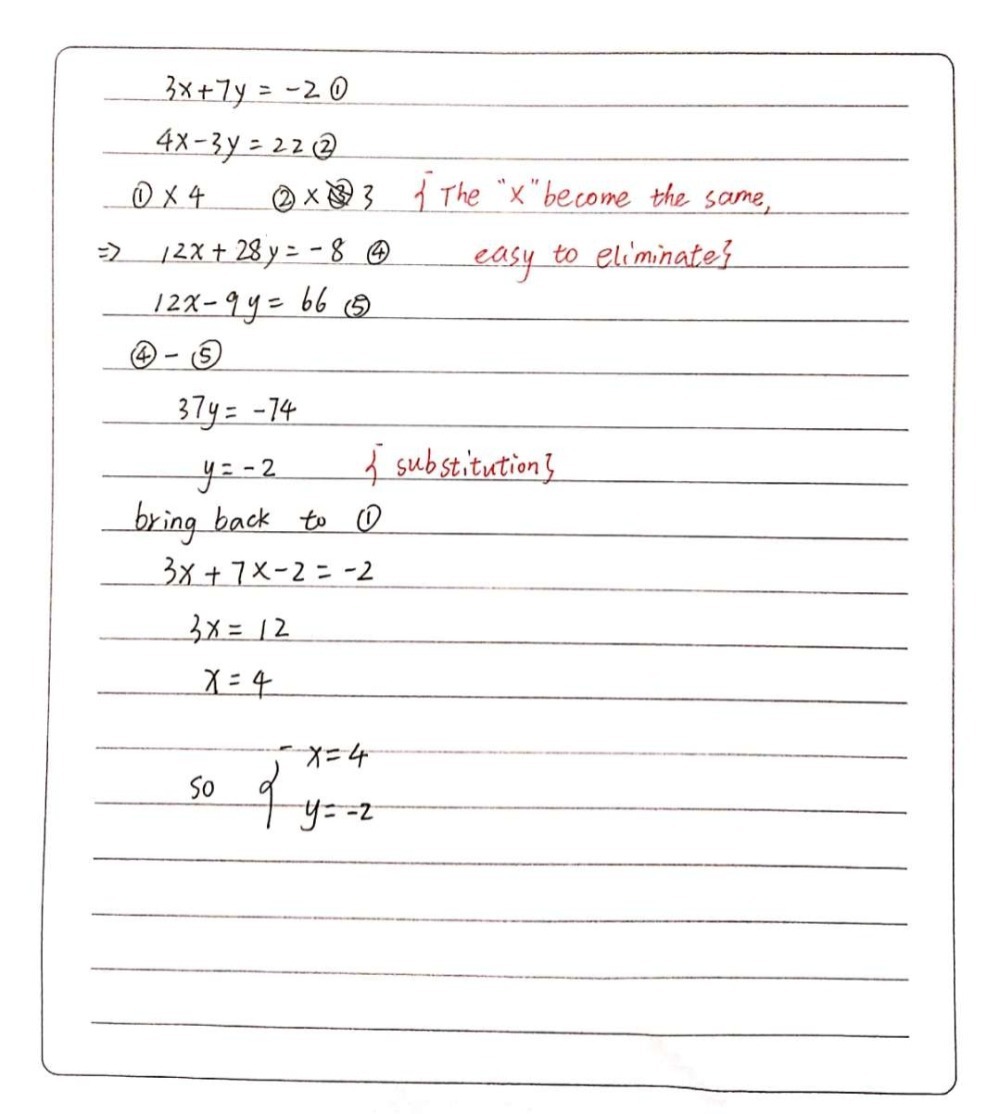 3x+7y = -2 ①
4x-3y = 22 ②
① × 4 ② × 3 { The "x" become the same,
=> 12x + 28y = -8 ④ easy to eliminate}
12x - 9y = 66 ⑤
④ - ⑤
37y = -74
y = -2 { substitution}
bring back to ①
3x + 7 × -2 = -2
3x = 12
x = 4
so { x = 4
y = -2